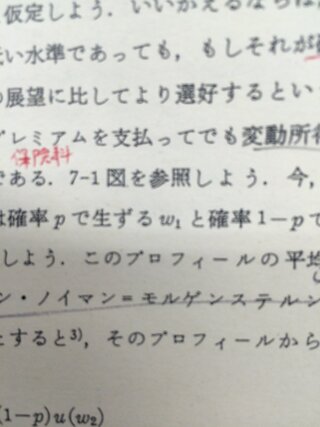 仮定しよう．いいかえるならば
い水準であっても，もしそれが
の展望に比してより選好するとい
プレミアムを支払ってでも変動所得
保険料
である．7-1図を参照しよう．今，
は確率 p で生ずる w₁ と確率 1−p で
しよう．このプロフィールの平均
ン・ノイマン＝モルゲンステルン
とすると³⁾，そのプロフィールから
(1−p)u(w₂)